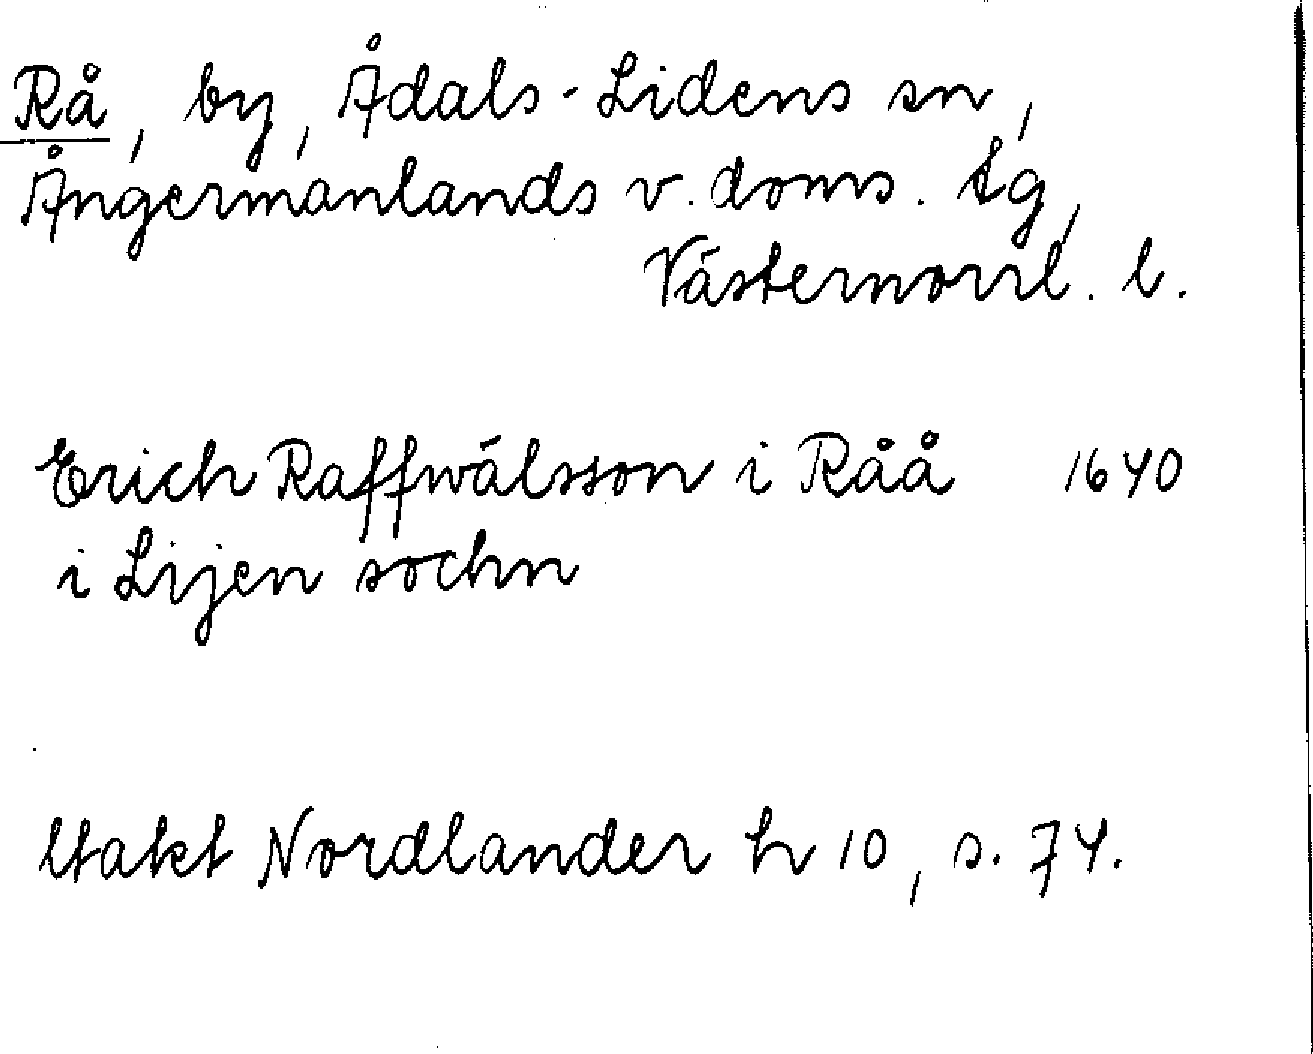 Rå, by, Ådals-Lidens sn,
Ångermanlands v. doms. tg,
Västernorrl. l.
Erich Raffwälsson i Råå 1640
i Lijen sochn
Utakt Nordlander h 10, s. 74.